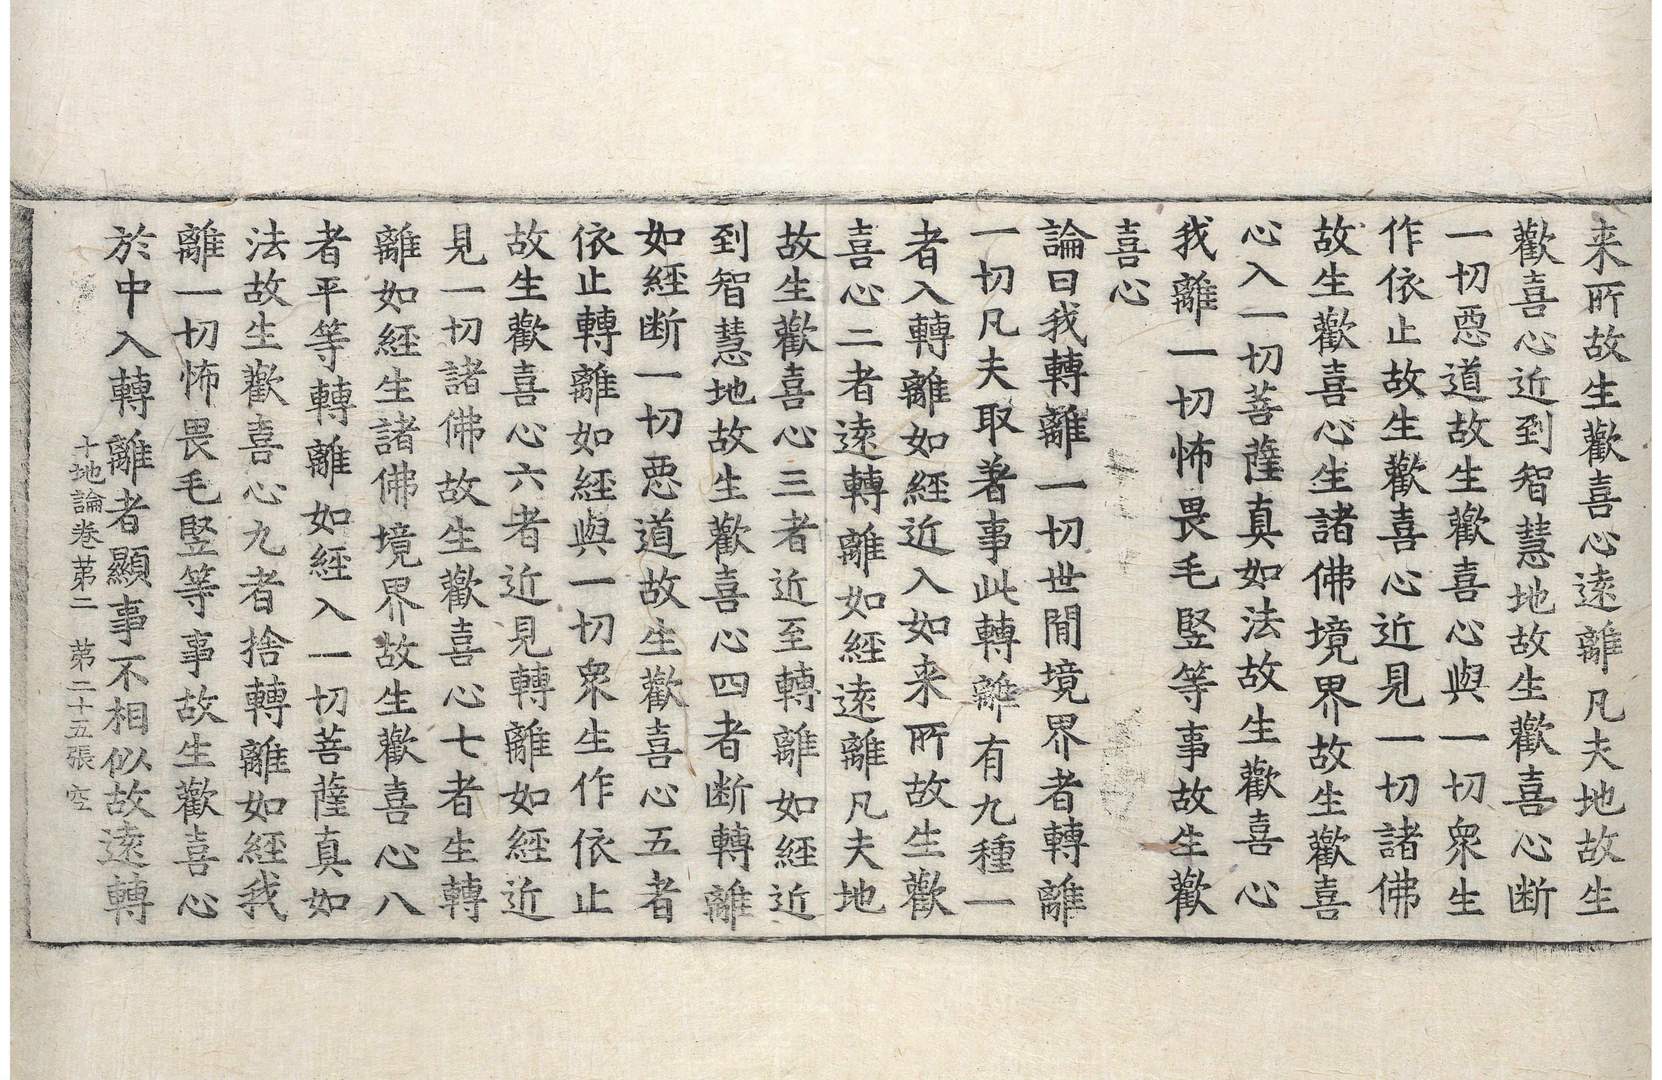 来所故生歡喜心遠離凡夫地故生
歡喜心近到智慧地故生歡喜心断
一切惡道故生歡喜心與一切衆生
作依止故生歡喜心近見一切諸佛
故生歡喜心生諸佛境界故生歡喜
心入一切菩薩真如法故生歡喜心
我離一切怖畏毛竪等事故生歡
喜心
論曰我轉離一切世間境界者轉離
一切凡夫取著事此轉離有九種一
者入轉離如經近入如来所故生歡
喜心二者遠轉離如經遠離凡夫地
故生歡喜心三者近至轉離如經近
到智慧地故生歡喜心四者断轉離
如經断一切惡道故生歡喜心五者
依止轉離如經與一切衆生作依止
故生歡喜心六者近見轉離如經近
見一切諸佛故生歡喜心七者生轉
離如經生諸佛境界故生歡喜心八
者平等轉離如經入一切菩薩真如
法故生歡喜心九者捨轉離如經我
離一切怖畏毛竪等事故生歡喜心
於中入轉離者顯事不相似故遠轉
十地論卷苐二 苐二十五張 空